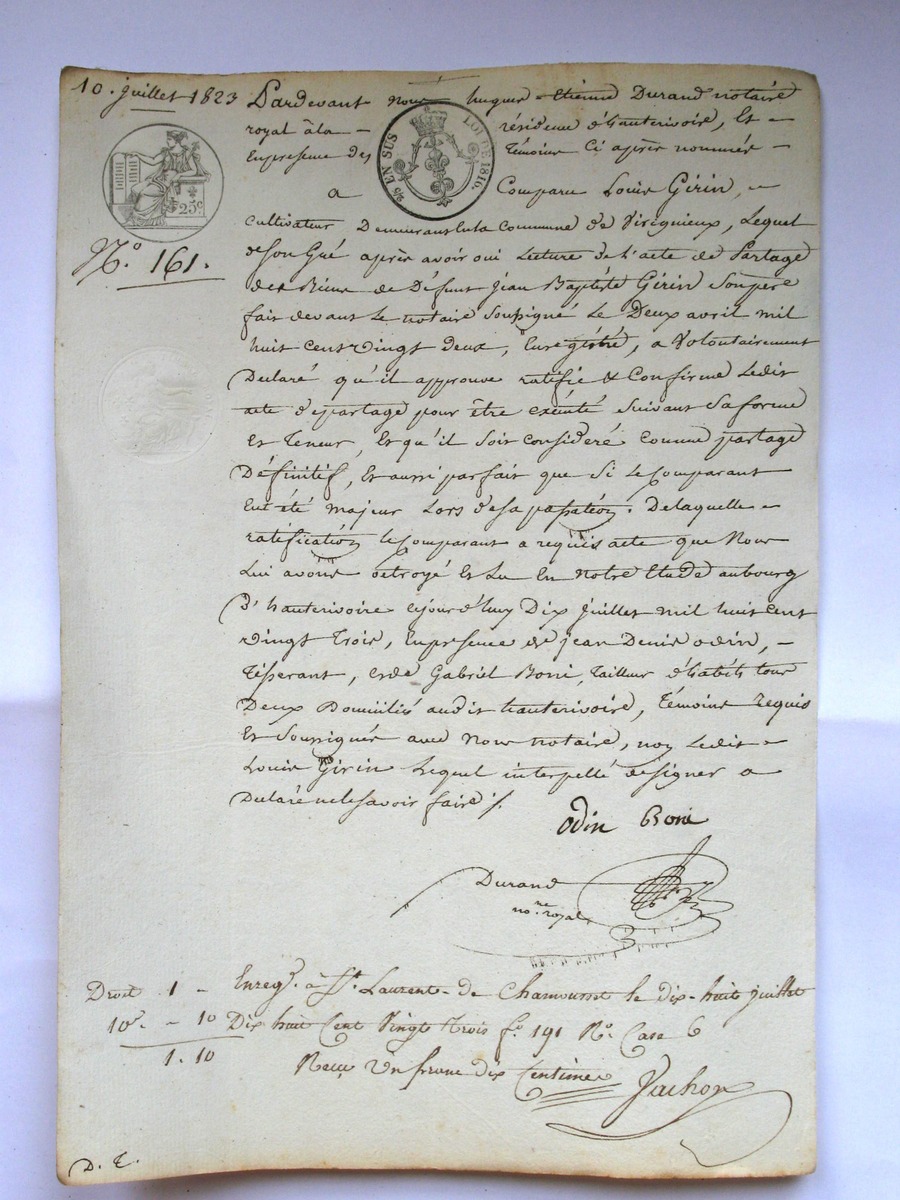 10. juillet 1823
Pardevant nous hugues-Etienne Durand notaire
royal à la - résidence d'hauterivoire, Et -
En presence des témoins Ci après nommés -
a Comparu Louis Girin, -
cultivateur Demeurant En la Commune de Virignieux, Lequel
de son Gré après avoir oui Lecture de l'acte de Partage
des Biens de Défunt Jean Baptiste Girin Son père
fait devant Le notaire Soussigné Le Deux avril mil
huit cent vingt deux, Enregistré, a Volontairement
Déclaré qu'il approuve ratifie & Confirme Ledit
acte de partage pour être exécuté Suivant Sa forme
Et Teneur, Et qu'il soit considéré comme partage
Définitif, Et aussi parfait que Si le Comparant
Eut été majeur Lors de sa passation. De laquelle -
ratification le Comparant a requis acte que Nous
Lui avons octroyé Et Lu En notre Etude au bourg
D'hauterivoire cejourd'huy Dix juillet mil huit cent
vingt Trois, En presence de jean Denis odin, -
Tisserant, et de Gabriel Boni, tailleur d'habits tous
Deux Domiciliés audit hauterivoire, Témoins requis
Et Soussignés avec Nous notaire, non Ledit -
Louis Girin Lequel interpellé de signer a
Déclaré ne le savoir faire ./.
odin Boni
Durand
no.re royal
Enreg.é à St. Laurent-de Chamousset le dix-huit juillet
Dix huit Cent Vingt trois f.o 191 R.o Case 6
Reçu Un franc dix Centimes
Jachon
Droit 1 -
10e. - 10
1. 10
D. E.
N.o 161.
25c
2/5 EN SUS
LOI DE 1816.